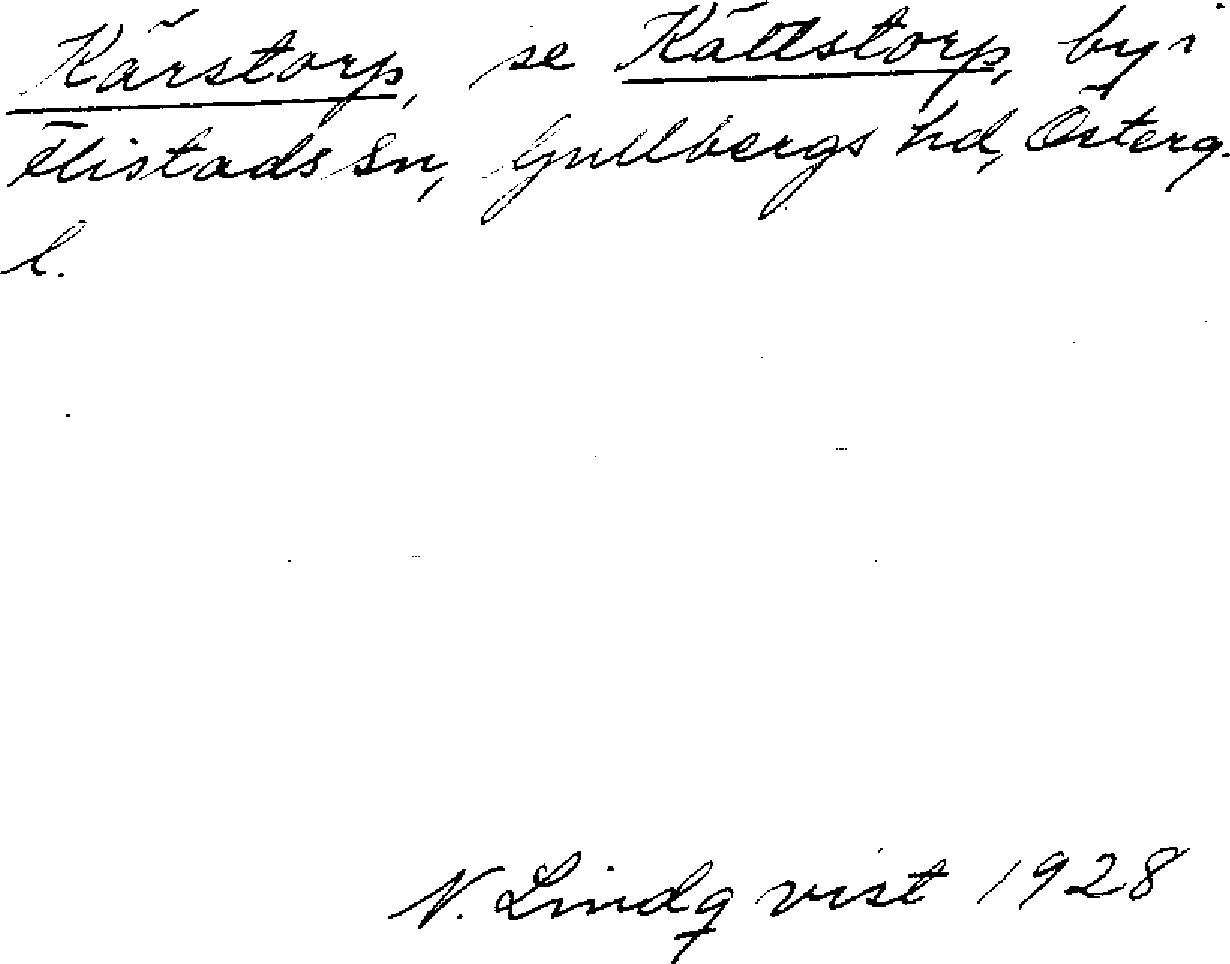 Kärstorp, se Källstorp, by i
Flistads sn, Gullbergs hd, Österg.
l.
N. Lindqvist 1928